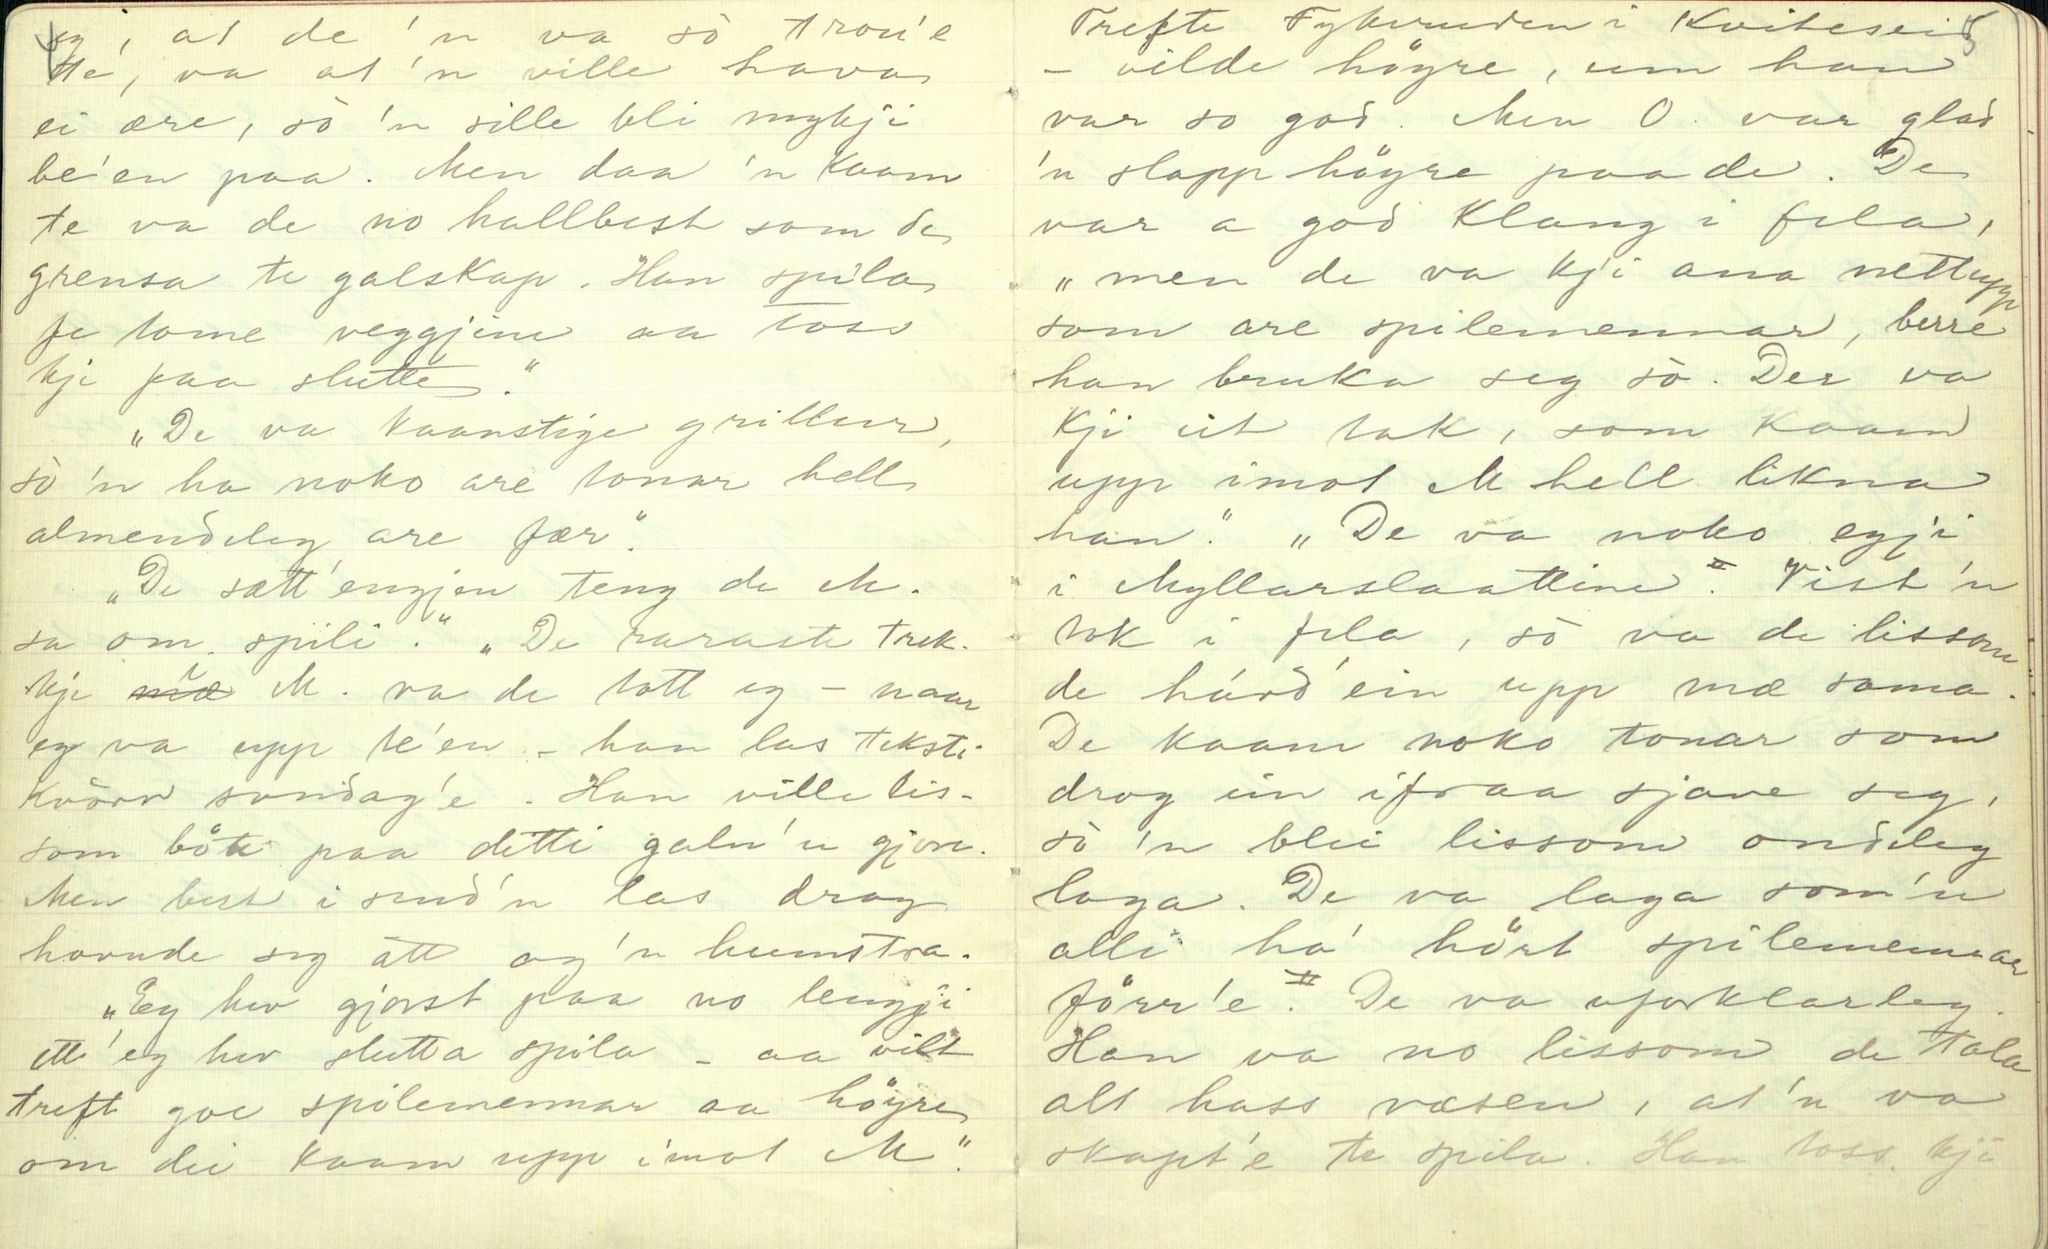 4
eg, at de 'n va sò trou'e
te, va at 'n ville hava
ei ære, sò 'n sille bli mykji
be'en paa. Men daa 'n kaam
te va de no hallbest som de
grensa te galskap. Han spila
fe tome veggjine aa toss
kji paa slutte."
"De va kaanstige grillur,
sò 'n ha noko are tonar hell
almendeleg are fær".
"De sætt' engjen teng de M.
sa om spili." "De raraste trek-
kje i M. va de tott eg – naar
eg va upp te'en – han las teksti
kvòrn sundag'e. Han ville lis-
som böte paa ditti galn'n gjore.
Men best i send'n las drog
haande seg ått og 'n humstra.
"Eg hev gjorst paa no lengji
ette' eg hev slutta spila – aa vilt
treft goe spilemennar aa höyre
om dei kaam upp imot M."
5
Trefte Fykeruden i Kviteseid
– vilde höyre, um han
var so god. Men O. var glad
'n slapp höyre paa de. De
var a god klang i fela,
"men de va kji ana nettupp
som are spilemennar, berre
han bruka seg sò. Der va
kji eit tak, som kaam
upp imot M hell likna
han." "De va noko egji
i Myllarslaattine". Vist 'n
tok i fela, sò va de lissom
de hávd' ein upp mæ sama.
De kaam noko tonar som
drog ein ifraa sjave seg,
sò 'n blei lissom ondeleg
laga. De va laga som 'n
alli há hört spilemennar
förr'e". De va uforklarleg.
Han va no lissom de tala
alt hass væsen, at 'n va
skapt'e te spila. Han toss kji